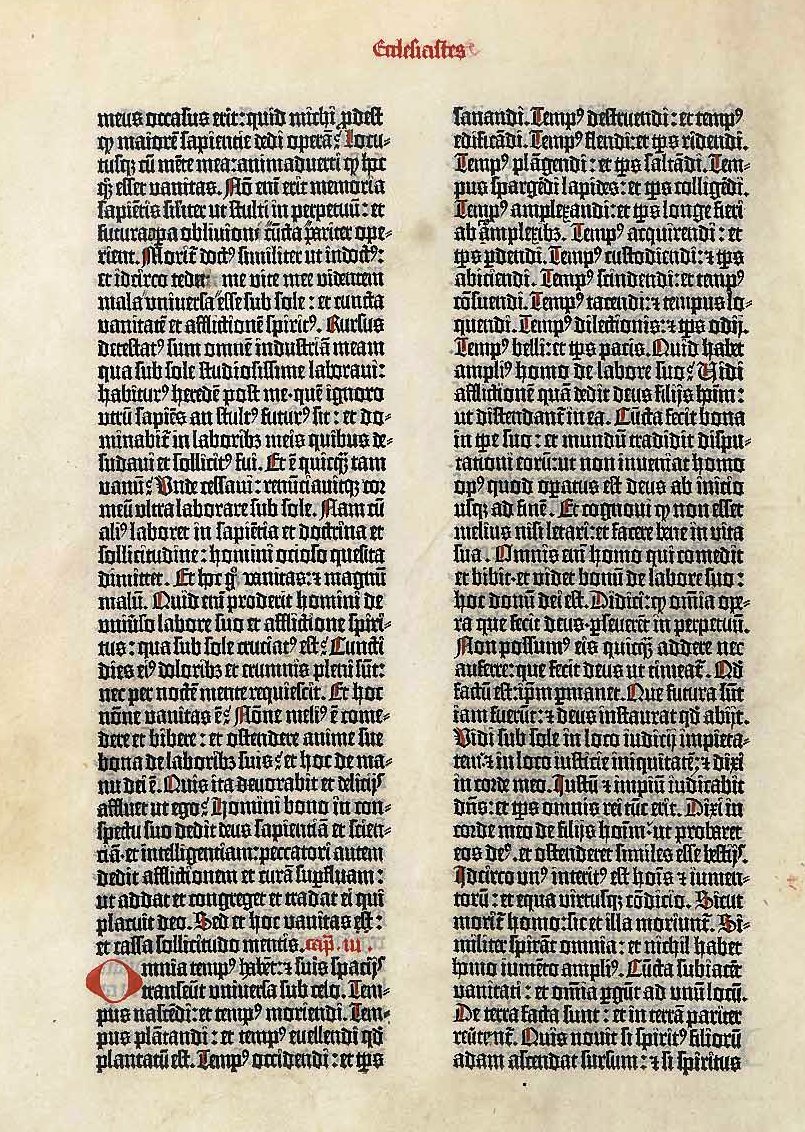 Ecclesiastes
meus occasus erit: quid michi ꝓdest
ꝙ maiorē sapientie dedi operā? Locu-
tusqꝫ cū mēte mea: animaduerti ꝙ hoc
qꝫ esset vanitas. Nō enī erit memoria
sapiētis siliter ut stulti in perpetuū: et
futura tꝑa obliuioni cūcta pariter ope-
rient. Morit̄ doctꝰ similiter ut indoctꝰ:
et idcirco tedet me vite mee videntem
mala vniuersa esse sub sole: et cuncta
vanitatē et afflictionē spiritꝰ. Rursus
detestatꝰ sum omnē industriā meam
qua sub sole studiosissime laboraui:
habiturꝰ heredē post me· quē ignoro
utrū sapiēs an stultꝰ futurꝰ sit: et do-
minabit̄ in laboribꝫ meis quibus de-
sudaui et sollicitꝰ fui. Et ē quicqꝫ tam
vanū? Vnde cessaui: renūciauitqꝫ cor
meū vltra laborare sub sole. Nam cū
aliꝰ laboret in sapiētia et doctrina et
sollicitudine: homini ocioso quesita
dimittet. Et hoc gͦ vanitas: ⁊ magnū
malū. Quid enī proderit homini de
vniūso labore suo et afflictione spiri-
tus: qua sub sole cruciatꝰ est? Cuncti
dies eiꝰ doloribꝫ et erumnis pleni sūt:
nec per noctē mente requiescit. Et hoc
nōne vanitas ē? Nōne meliꝰ ē come-
dere et bibere: et ostendere anime sue
bona de laboribꝫ suis? et hoc de ma-
nu dei ē. Quis ita deuorabit et delicijs
affluet ut ego? Homini bono in con-
spectu suo dedit deus sapientiā et scien-
ciā· et intelligentiam: peccatori autem
dedit afflictionem et curā suꝑfluam:
ut addat et congreget et tradat ei qui
placuit deo. Sed et hoc vanitas est:
et cassa sollicitudo mentis. cap̄. iii.
Omnia tempꝰ habēt: ⁊ suis spacijs
transeūt vniuersa sub celo. Tem-
pus nascēdi: et tempꝰ moriendi. Tem-
pus plātandi: et tempꝰ euellendi qd
plantatū est. Tempꝰ occidendi: et tp̄s
sanandi. Tempꝰ destruendi: et tempꝰ
edificādi. Tempꝰ flendi: et tp̄s ridendi.
Tempꝰ plāgendi: et tp̄s saltādi. Tem-
pus spargēdi lapides: et tp̄s colligēdi.
Tempꝰ amplexandi: et tp̄s longe fieri
ab āmplexibꝫ. Tempꝰ acquirendi: et
tp̄s ꝑdendi. Tempꝰ custodiendi: ⁊ tp̄s
abiciendi. Tempꝰ scindendi: et tempꝰ
cōsuendi. Tempꝰ tacendi: ⁊ tempus lo-
quendi. Tempꝰ dilectionis: ⁊ tp̄s odij.
Tempꝰ belli: et tp̄s pacis. Quid habet
ampliꝰ homo de labore suo? Vidi
afflictionē quā dedit deus filijs hoīm:
ut distendant̄ in ea. Cūcta fecit bona
in tp̄e suo: et mundū tradidit dispu-
tationi eorū: ut non inueniat homo
opꝰ quod oꝑatus est deus ab inicio
usqꝫ ad finē. Et cognoui ꝙ non esset
melius nisi letari: et facere bene in vita
sua. Omnis enī homo qui comedit
et bibit· et videt bonū de labore suo:
hoc donū dei est. Didici: ꝙ om̄ia ope-
ra que fecit deus· ꝑseuerēt in perpetuū.
Non possumꝰ eis quicqꝫ addere nec
auferre: que fecit deus ut timeat̄. Qd
factū est: ip̄m ꝑmanet. Que futura sūt
iam fuerūt: ⁊ deus instaurat qd abijt.
Vidi sub sole in loco iudicij impieta-
tem: ⁊ in loco iusticie iniquitatē: ⁊ dixi
in corde meo. Justū ⁊ impiū iudicabit
dn̄s: et tp̄s omnis rei tūc erit. Dixi in
corde meo de filijs hoīm· ut probaret
eos deꝰ· et ostenderet similes esse bestijs.
Idcirco vnꝰ interitꝰ est hoīs ⁊ iumen-
torū: et equa virtusqꝫ cōdicio. Sicut
morit̄ homo: sic et illa moriunt̄. Si-
militer spirāt omnia: et nichil habet
homo iumēto ampliꝰ. Cūcta subiacēt
vanitati: et om̄ia ꝑgūt ad vnū locū.
De terra facta sunt: et in terrā pariter
reūtent̄. Quis nouit si spiritꝰ filiorū
adam ascendat sursum: ⁊ si spiritus